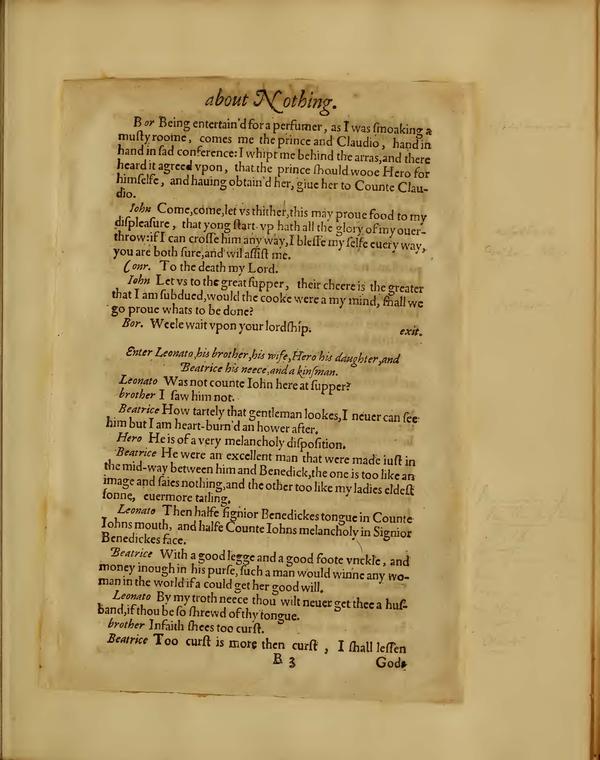 about Nothing.
Bor Being entertain'd for a perfumer, as I was ſmoaking a
muſty roome, comes me the prince and Claudio, hand in
hand in ſad conference: I whipt me behind the arras, and there
heard it agreed vpon, that the prince ſhould wooe Hero for
himſelfe, and hauing obtain'd her, giue her to Counte Clau-
dio.
Iohn Come, come, let vs thither, this may proue food to my
diſpleaſure, that yong ſtart-vp hath all the glory of my ouer-
throw: if I can croſſe him any way, I bleſſe my ſelfe euery way,
you are both ſure, and wil aſſiſt me.
Conr. To the death my Lord.
Iohn Let vs to the great ſupper, their cheere is the greater
that I am ſubdued, would the cooke were a my mind, ſhall we
go proue whats to be done?
Bor. Weele wait vpon your lordſhip.
exit.
Enter Leonato, his brother, his wife, Hero his daughter, and
Beatrice his neece, and a kinſman.
Leonato Was not counte Iohn here at ſupper?
brother I ſaw him not.
Beatrice How tartely that gentleman lookes, I neuer can ſee
him but I am heart-burn'd an hower after.
Hero He is of a very melancholy diſpoſition.
Beatrice He were an excellent man that were made iuſt in
the mid-way between him and Benedick, the one is too like an
image and ſaies nothing, and the other too like my ladies eldeſt
ſonne, euermore tatling.
Leonato Then halfe ſignior Benedickes tongue in Counte
Iohns mouth, and halfe Counte Iohns melancholy in Signior
Benedickes face.
Beatrice With a good legge and a good foote vnckle, and
money inough in his purſe, ſuch a man would winne any wo-
man in the world if a could get her good will.
Leonato By my troth neece thou wilt neuer get thee a huſ-
band, if thou be ſo ſhrewd of thy tongue.
brother Infaith ſhees too curſt.
Beatrice Too curſt is more then curſt, I ſhall leſſen
B 3
Gods